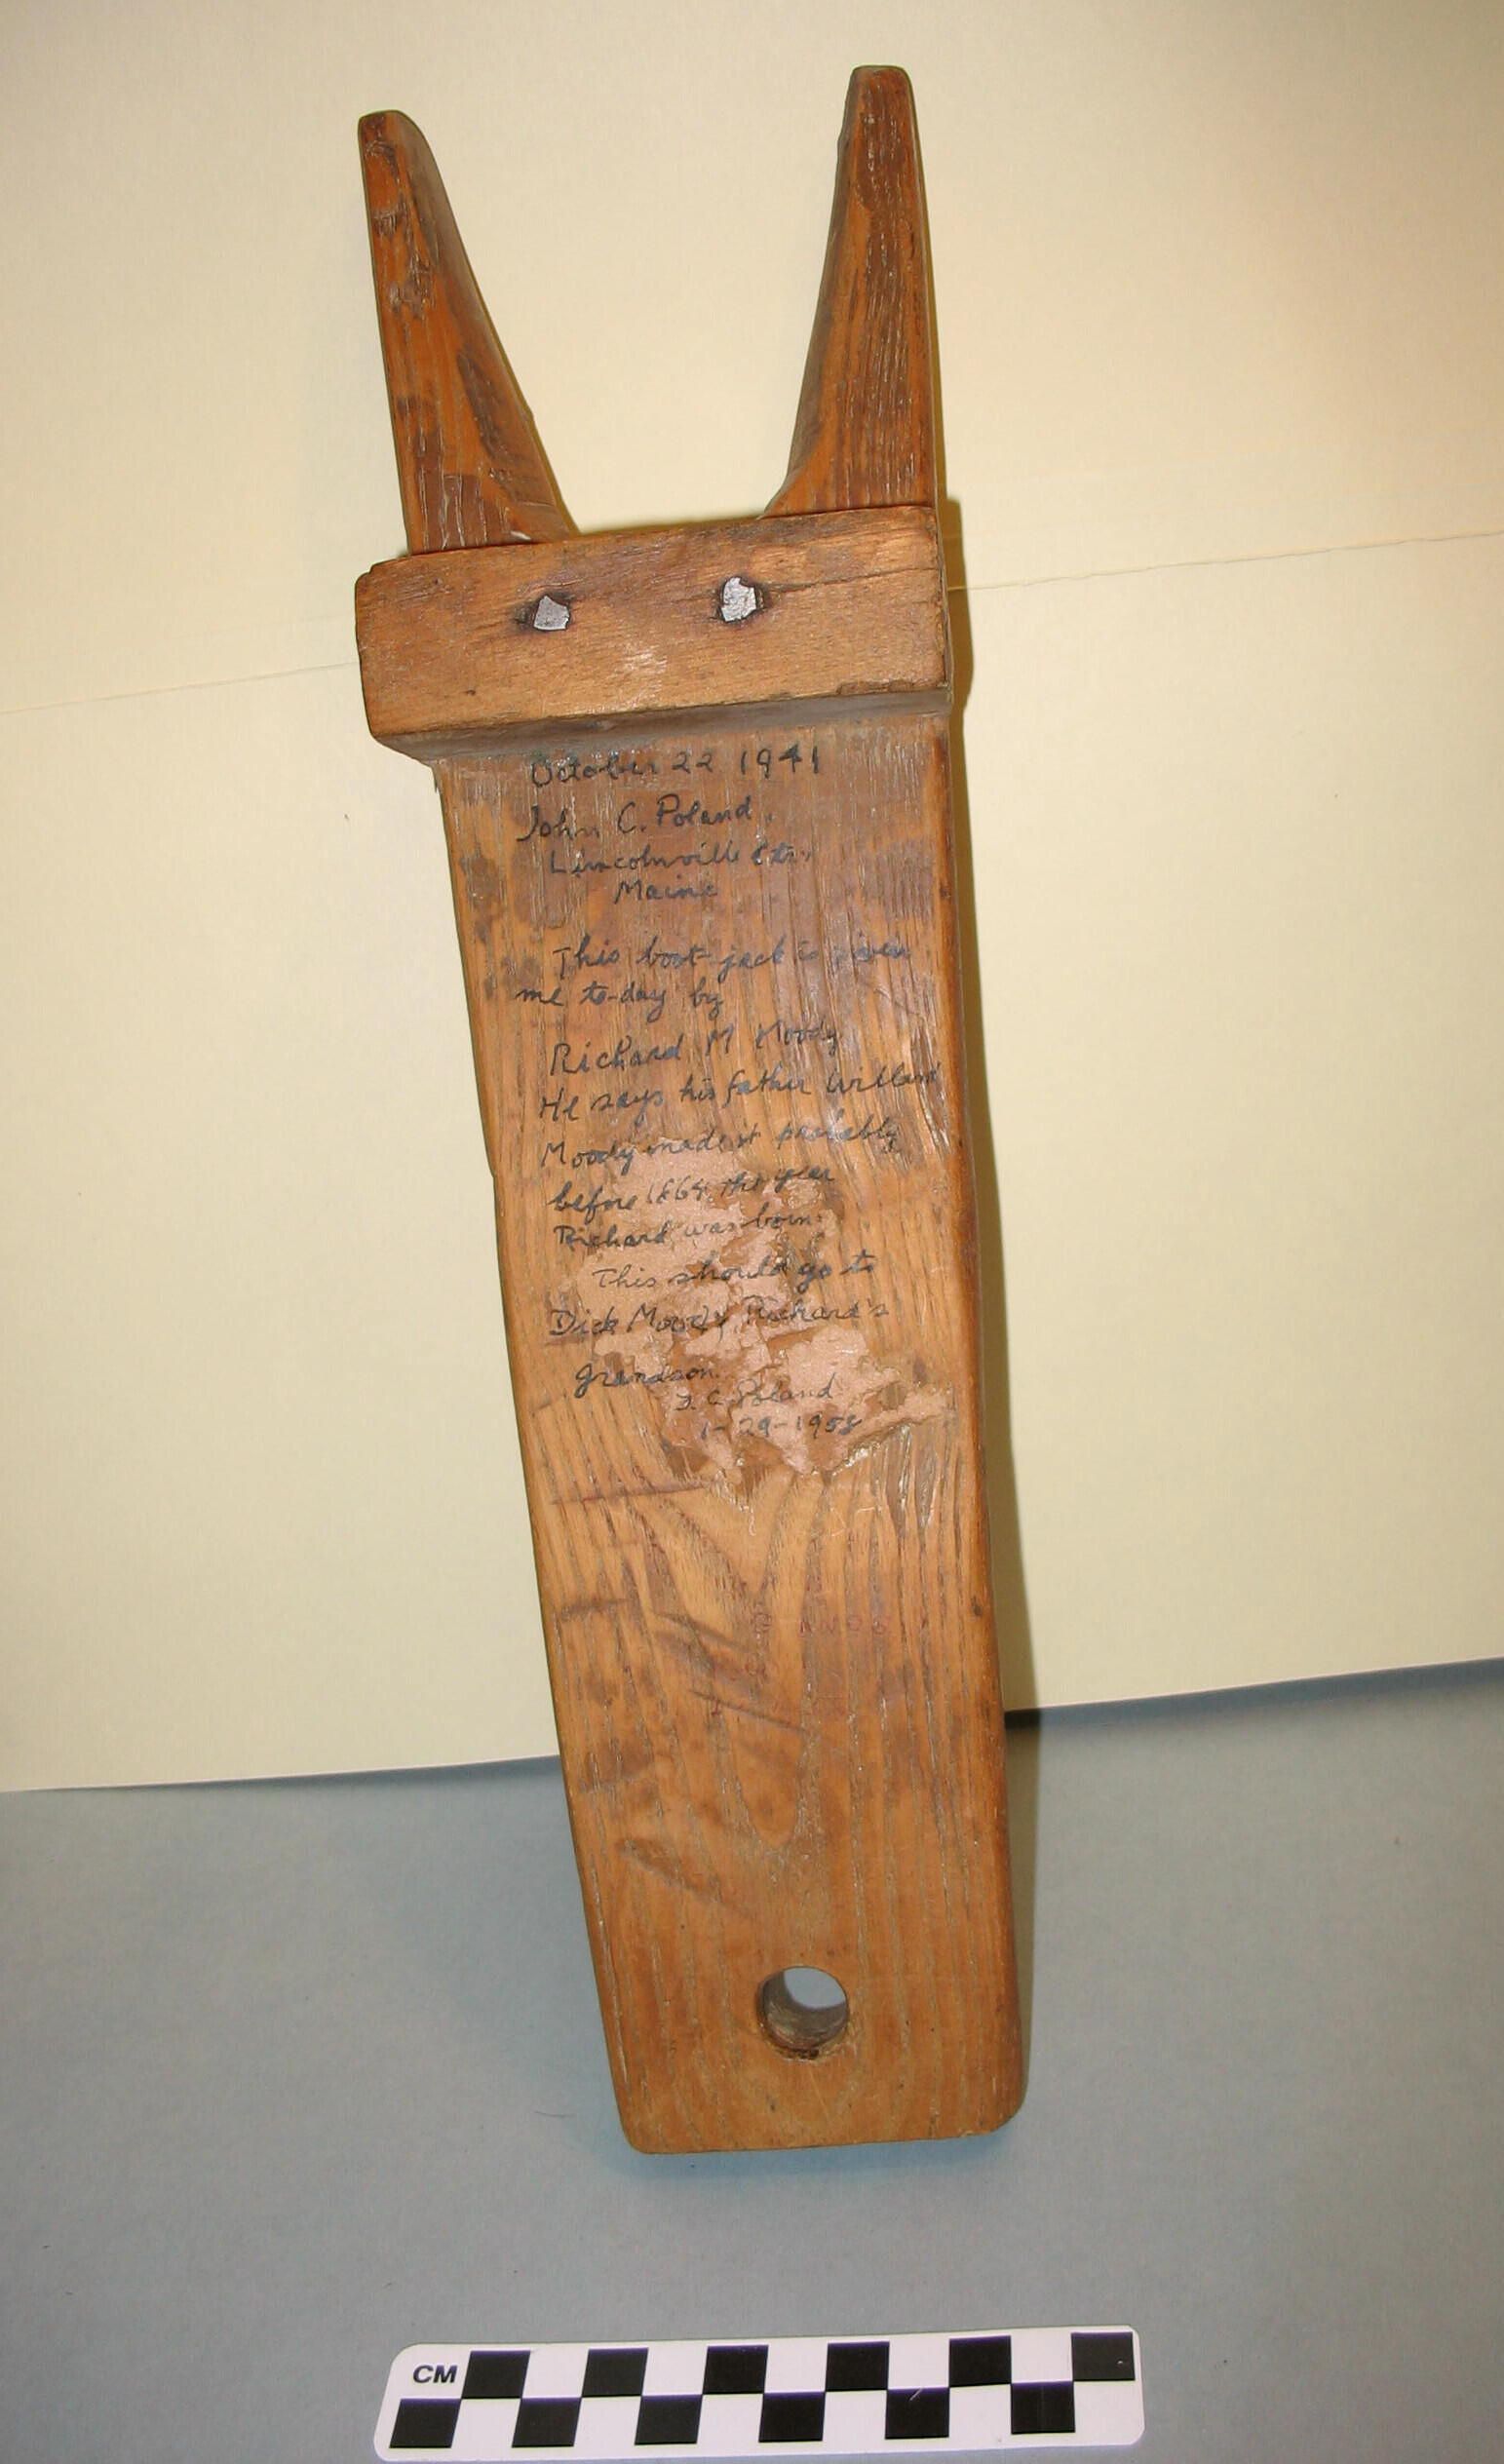 October 22 1941
John C. Poland
Lincolnville Ctr.
Maine
This boot-jack is given
me to-day by
Richard M Moody
He says his father Willard
Moody made it probably
before 1864 the year
Richard was born.
This should go to
Dick Moody Richard's
grandson.
J. C. Poland
1-29-1958
CM